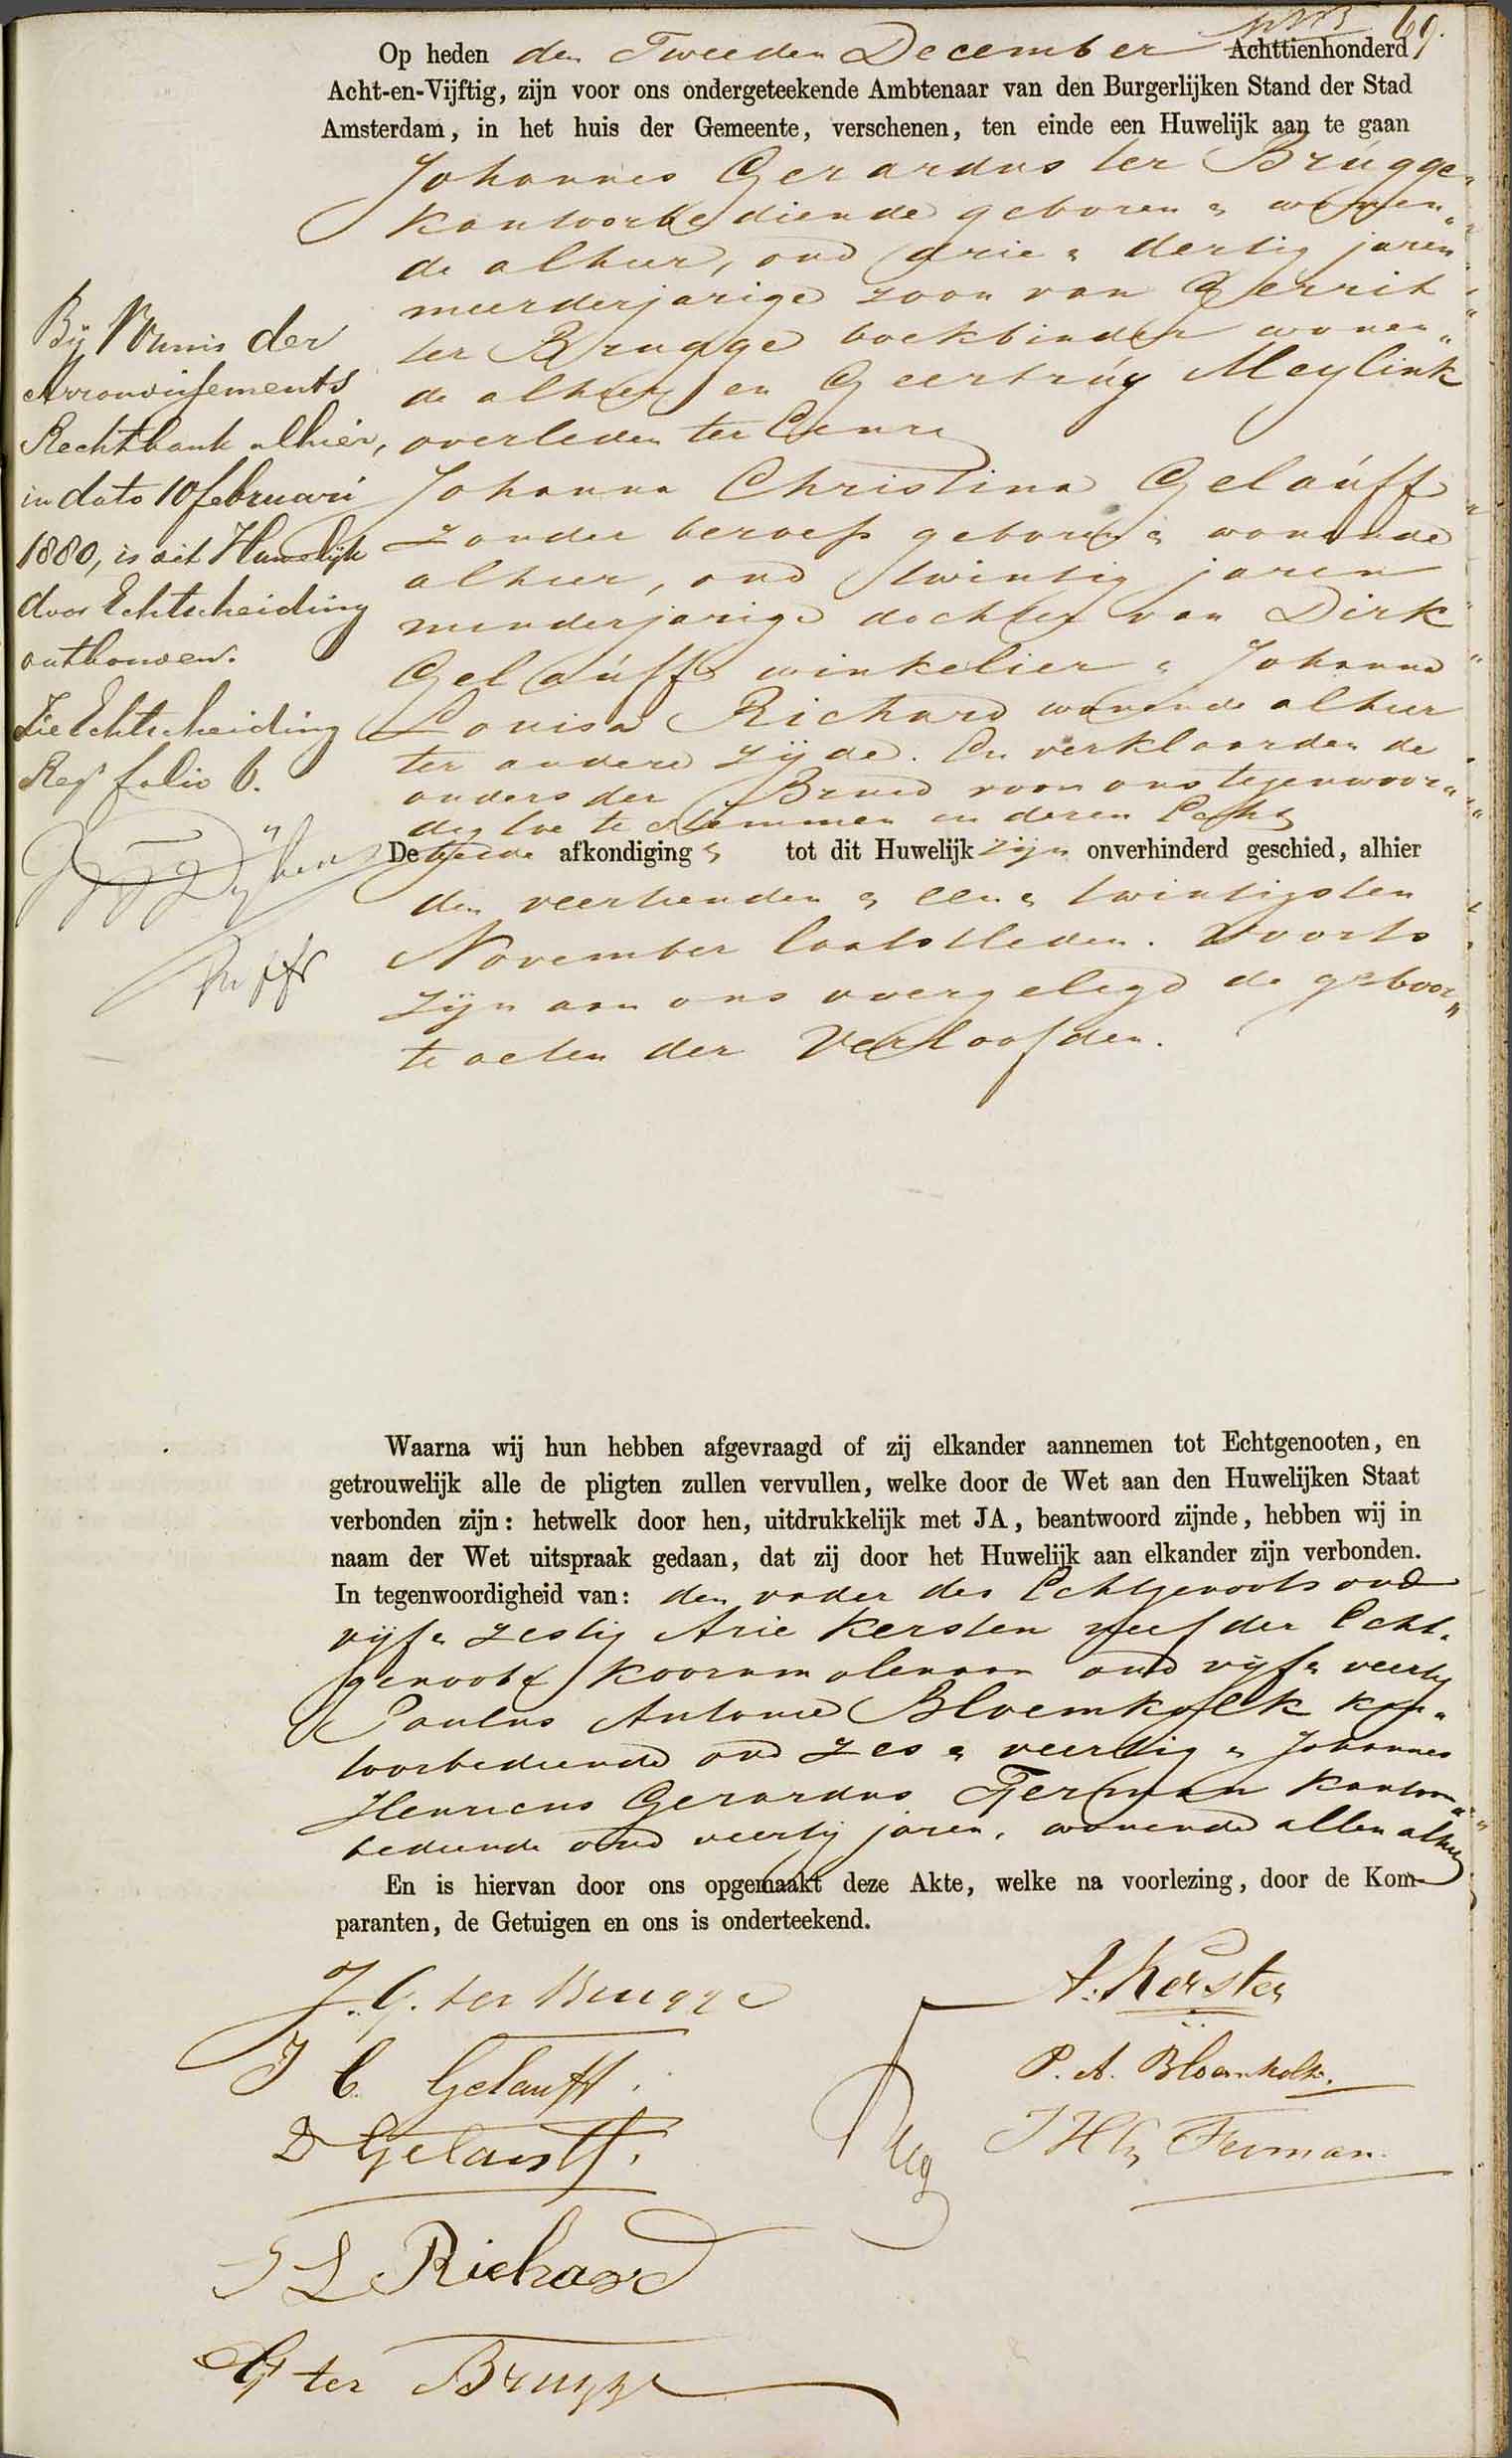 69.
Op heden den Tweeden December Achttienhonderd
Acht-en-Vijftig, zijn voor ons ondergeteekende Ambtenaar van den Burgerlijken Stand der Stad
Amsterdam, in het huis der Gemeente, verschenen, ten einde een Huwelijk aan te gaan
Johannes Gerardus ter Brugge
kantoorbediende geboren & wonen„
de alhier, oud drie & dertig jaren
meerderjarige zoon van Gerrit
ter Brugge boekbinder wonen„
de alhier en Geertruy Meylink
overleden ter Eenre
Johanna Christina Gelauff
zonder beroep geboren & wonende
alhier, oud twintig jaren
minderjarige dochter van Dirk
Gelauff winkelier & Johanna
Louisa Richard wonende alhier
ter andere zijde. En verklaarden de
ouders der Bruid voor ons tegenwoor„
dig toe te stemmen in deren Echt
De beide afkondiging & tot dit Huwelijk zijn onverhinderd geschied, alhier
den veertienden & een & twintigsten
November laatstleden. Voorts
zijn aan ons overgelegd de geboor„
te acten der Verloofden.
By Vonnis der
Arrondissements
Rechtbank alhier,
in dato 10 februari
1880, is dit Huwelijk
door Echtscheiding
ontbonden.
Zie Echtscheiding
Regr folio 6.
Waarna wij hun hebben afgevraagd of zij elkander aannemen tot Echtgenooten, en
getrouwelijk alle de pligten zullen vervullen, welke door de Wet aan den Huwelijken Staat
verbonden zijn: hetwelk door hen, uitdrukkelijk met JA, beantwoord zijnde, hebben wij in
naam der Wet uitspraak gedaan, dat zij door het Huwelijk aan elkander zijn verbonden.
In tegenwoordigheid van: den vader des Echtgenoots oud
vijf & zestig Arie Kersten neef der Echt„
genoote koornmolenaar oud vijf & veertig
Paulus Antonie Bloemkolk kan„
toorbediende oud zes & veertig & Johannes
Henricus Gerardus Ferman kantoor„
bediende oud veertig jaren, wonende allen alhier
En is hiervan door ons opgemaakt deze Akte, welke na voorlezing, door de Kom-
paranten, de Getuigen en ons is onderteekend.
J. G. ter Brugge
J C Gelauff.
D Gelauff.
J L Richard
G ter Brugge
A. Kersten
P. A. Bloemkolk.
J H G Ferman.